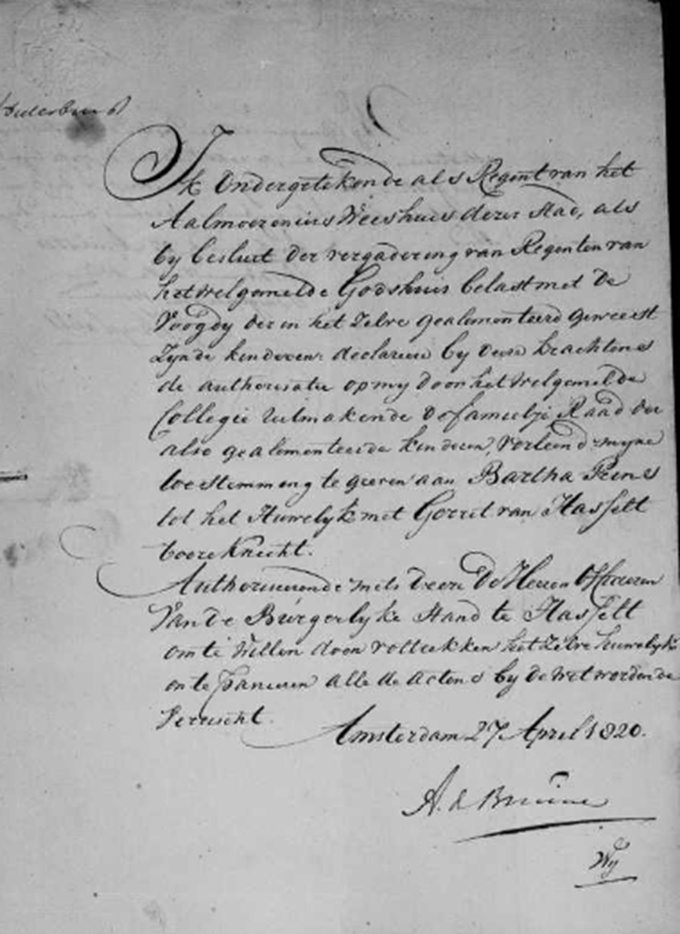 Ik Ondergetekende als Regent van het
Aalmoezeniers Weeshuis dezer Stad, als
by besluit der vergadering van Regenten van
het welgemelde Godshuis belast met de
Voogdy der in het zelve gealementeerd geweest
zynde kinderen: declareere by deze krachtens
de authorisatie op my door het welgemelde
Collegie uitmakende de famielje Raad der
also gealementeerde kinderen, verleend myne
toestemming te geeven aan Bartha Pens
tot het Huwelyk met Gerret van Hasselt
boereknecht.
Authoriseerende mits deeze De Heeren Officieren
van de Burgerlyke Stand te Hasselt
om te willen doen voltrekken het zelve huwelyk
en te passeeren alle de actens by de wet worden de
vereischt.
Amsterdam 27 April 1820.
A. d. Bruine
Wij